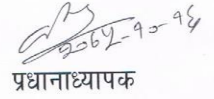 २०६५-१०-१६
प्रधानाध्यापक